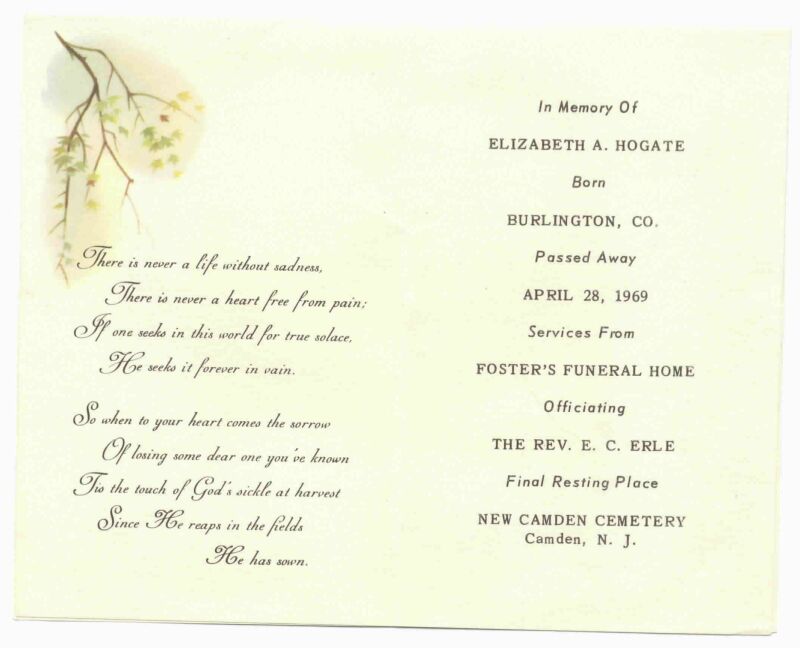 There is never a life without sadness,
There is never a heart free from pain;
If one seeks in this world for true solace,
He seeks it forever in vain.
So when to your heart comes the sorrow
Of losing some dear one you've known
Tis the touch of God's sickle at harvest
Since He reaps in the fields
He has sown.
In Memory Of
ELIZABETH A. HOGATE
Born
BURLINGTON, CO.
Passed Away
APRIL 28, 1969
Services From
FOSTER'S FUNERAL HOME
Officiating
THE REV. E. C. ERLE
Final Resting Place
NEW CAMDEN CEMETERY
Camden, N. J.